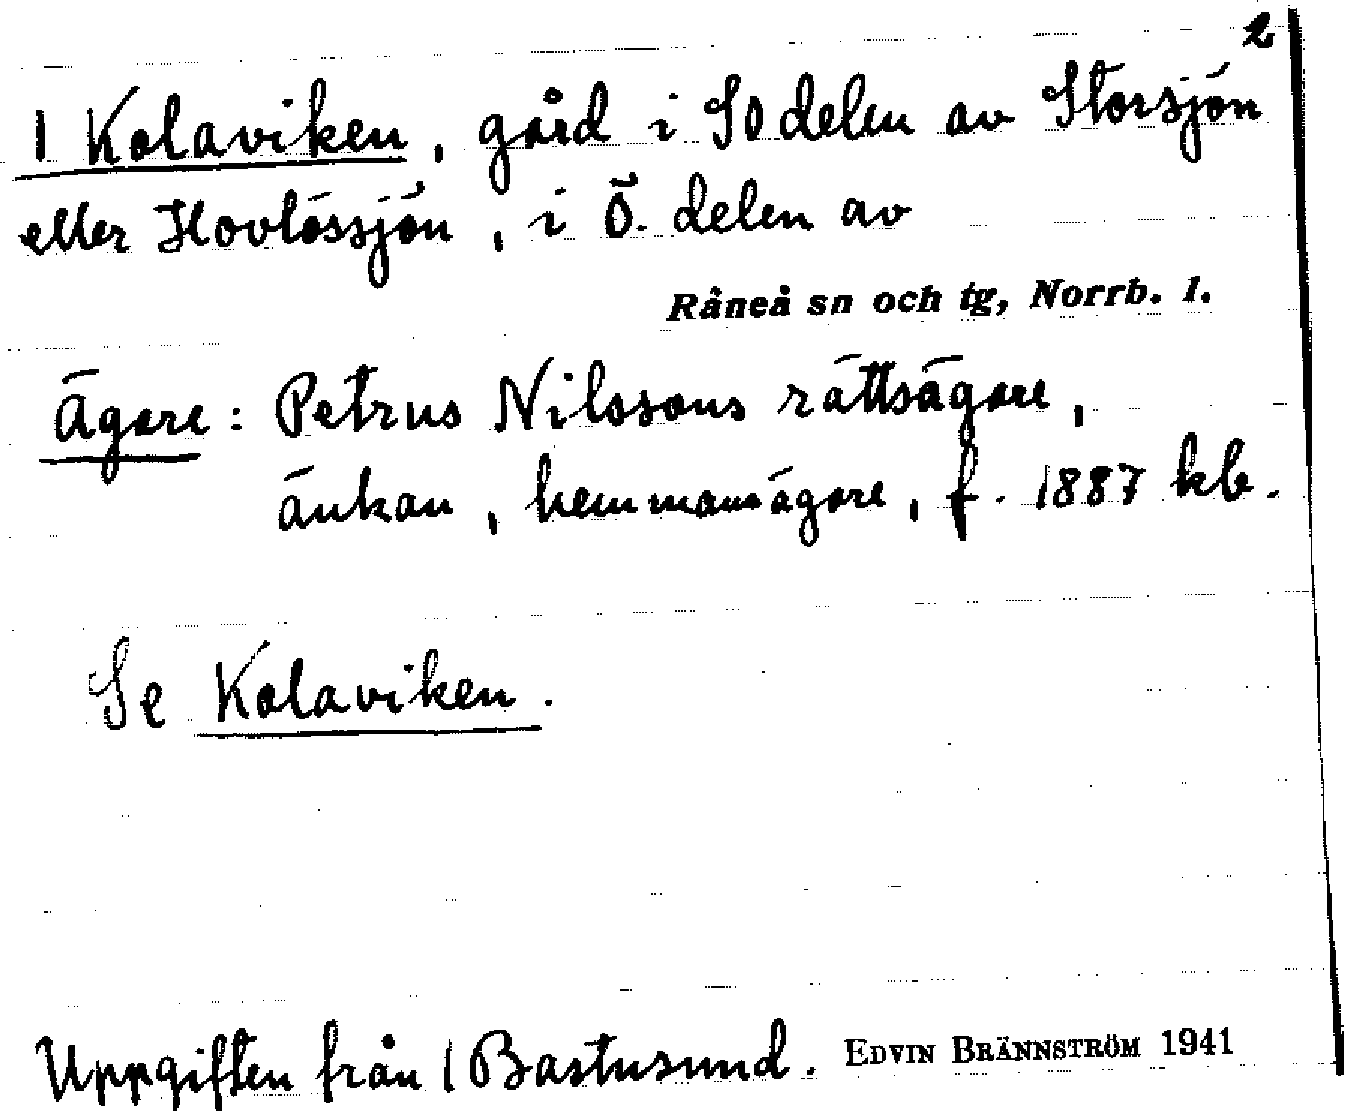 2
1 Kolaviken, gård i SO delen av Storsjön
eller Hovlössjön, i Ö. delen av
Råneå sn och tg, Norrb. l.
Ägare: Petrus Nilssons rättsägare,
änkan, hemmansägare, f. 1887 kb.
Se Kolaviken.
Uppgiften från 1 Bastusund. EDVIN BRÄNNSTRÖM 1941